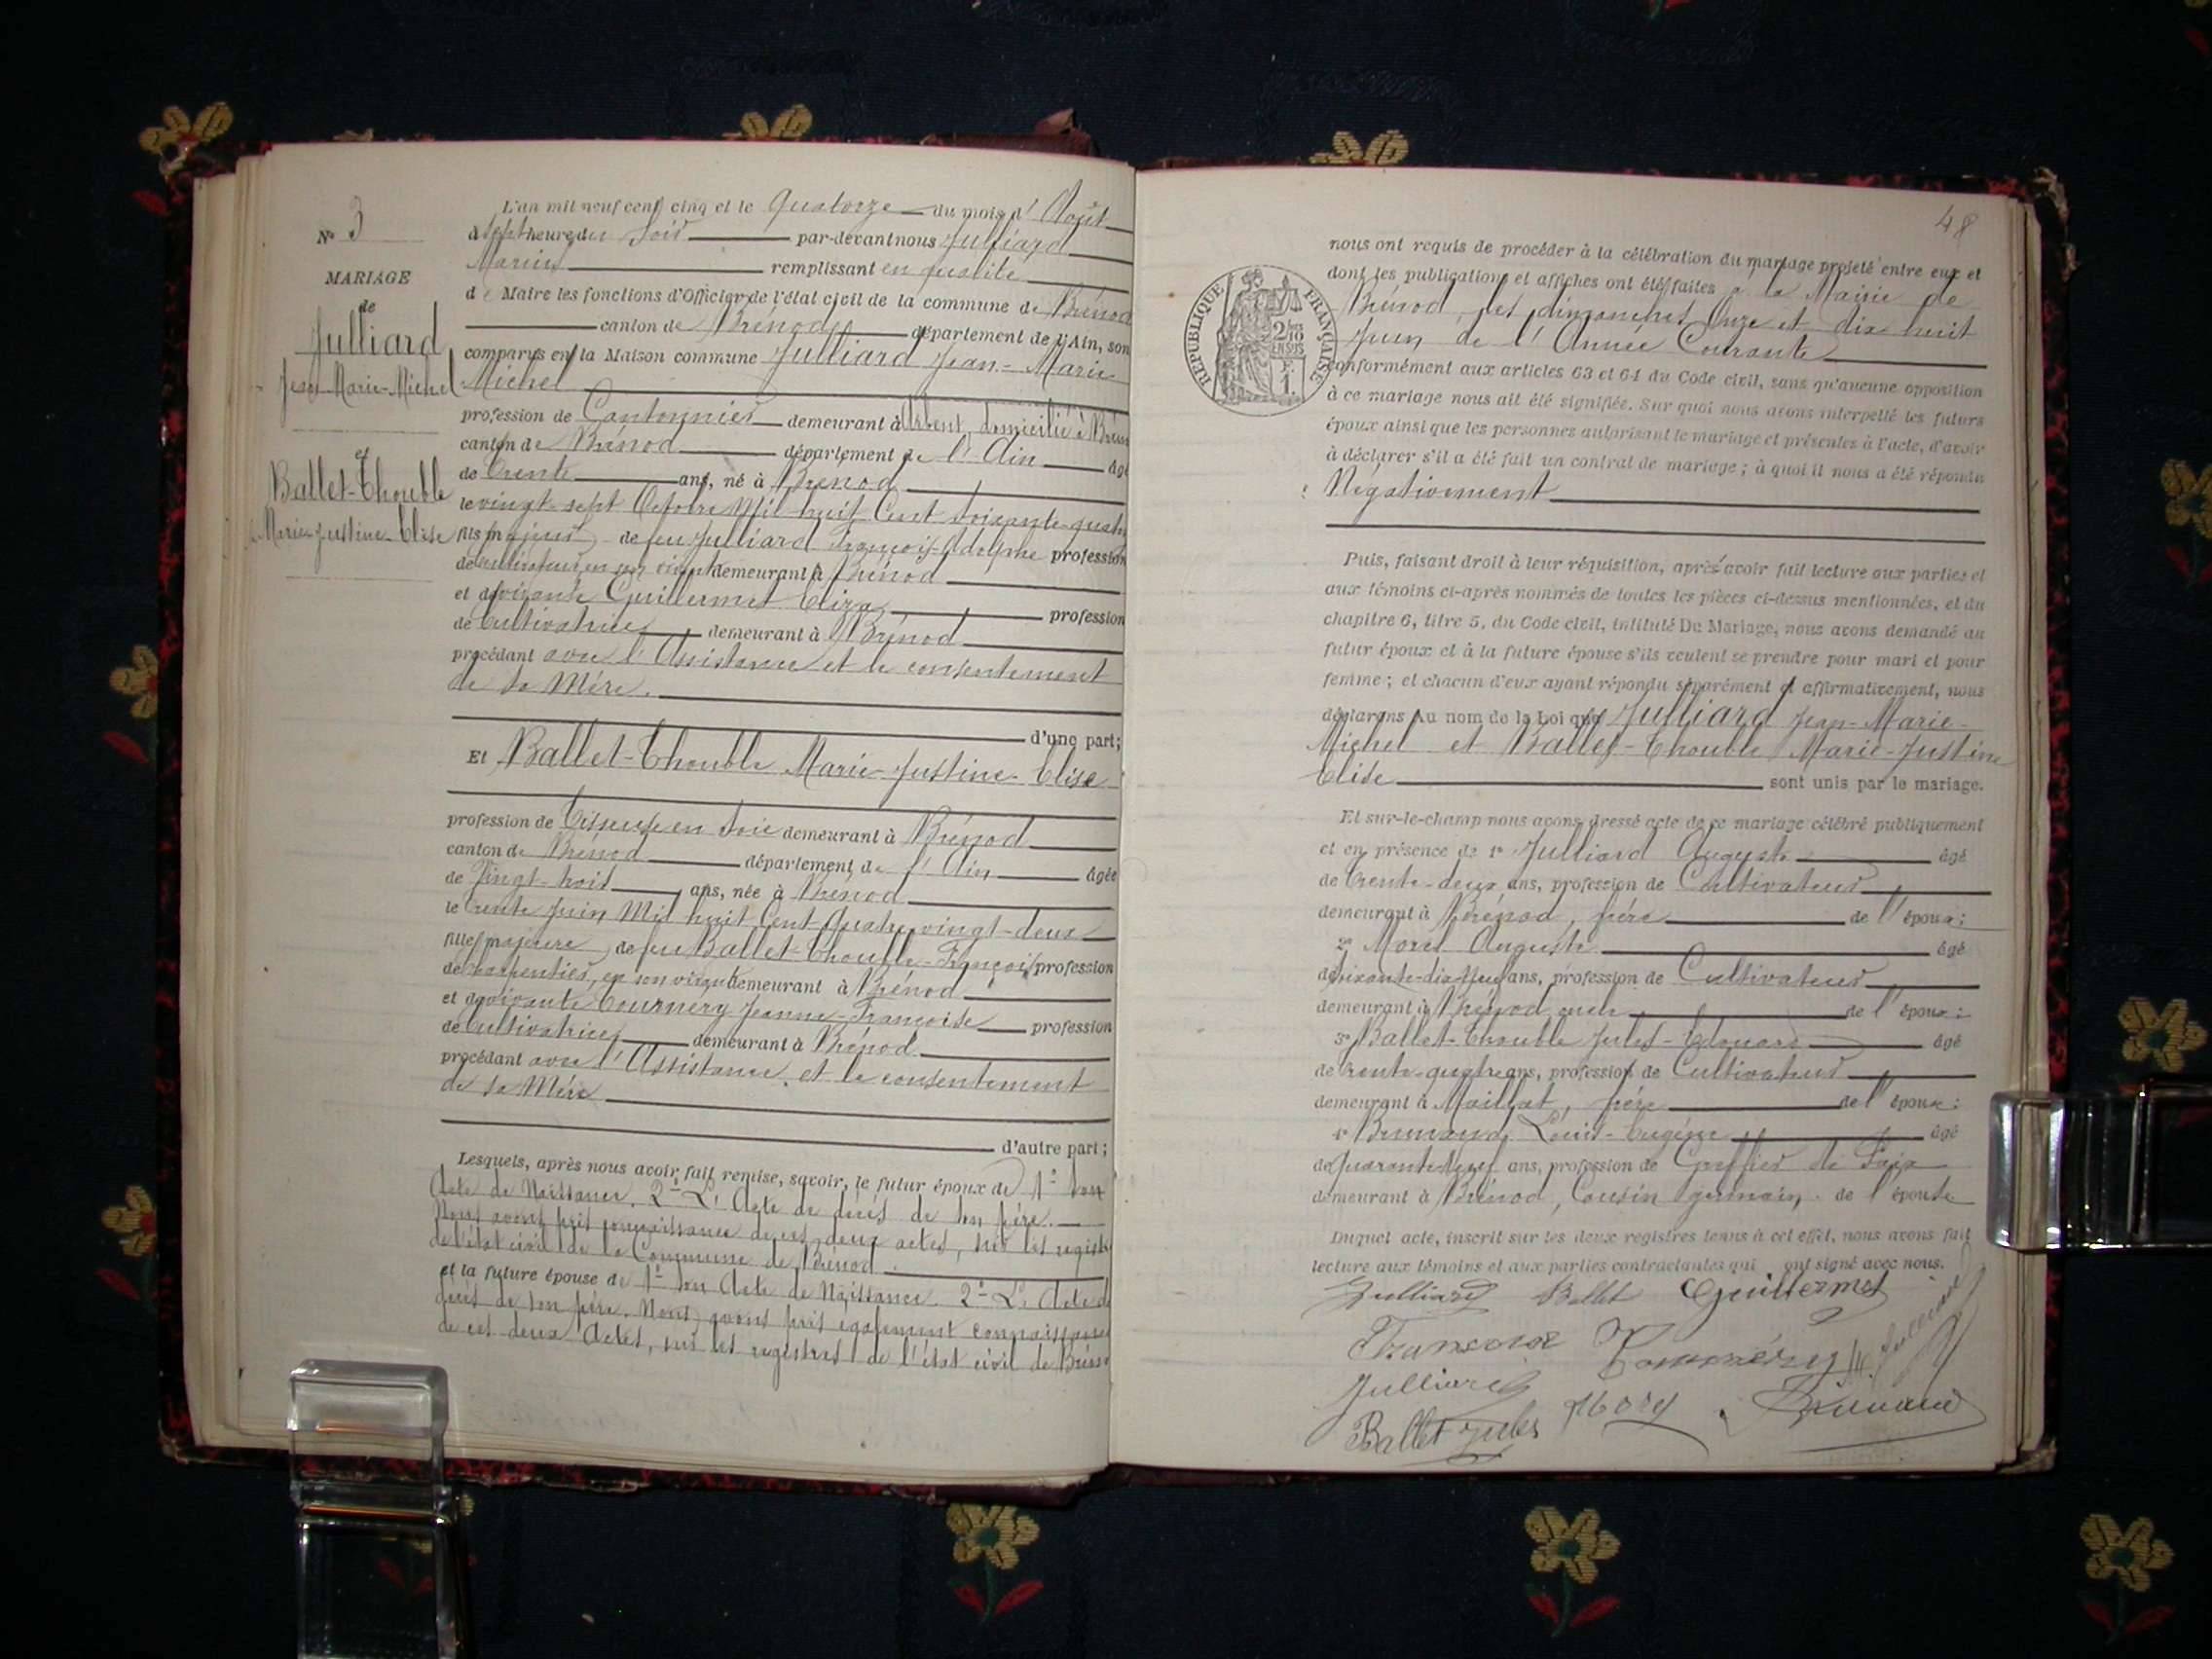 N° 3
MARIAGE
de
Julliard
Jean-Marie-Michel
et
Ballet-Thouble
Marie-Justine-Elise
L'an mil neuf cent cinq et le Quatorze du mois d'Août
à sept heures du soir par-devant nous Julliard
Marius remplissant en qualité
de Maire les fonctions d'Officier de l'état civil de la commune de Brénod
canton de Brénod département de l'Ain, son
comparus en la Maison commune Julliard Jean-Marie
Michel
profession de Cantonnier demeurant à Arbent, domicilié à Brénod
canton de Brénod département de l'Ain âgé
de trente ans, né à Brénod
le vingt-sept Octobre Mil huit Cent soixante-quat
fils majeur de feu Julliard François-Adolphe profession
de cultivateur en son vivant demeurant à Brénod
et de vivante Guillermet Eliza profession
de Cultivatrice demeurant à Brénod
procédant avec l'Assistance et le consentement
de sa Mère.
d'une part;
Et Ballet-Thouble Marie-Justine-Elise
profession de Tisseuse en soie demeurant à Brénod
canton de Brénod département de l'Ain âgée
de Vingt-trois ans, née à Brénod
le trente Juin Mil huit Cent Quatre vingt-deux
fille majeure de feu Ballet-Thouble-François profession
de charpentier, en son vivant demeurant à Brénod
et de vivante Jeanne-Françoise profession
de Cultivatrice demeurant à Brénod
procédant avec l'Assistance, et le consentement
de sa Mère
d'autre part;
Lesquels, après nous avoir fait remise, savoir, le futur époux de 1° son
Acte de Naissance. 2° L'Acte de décès de son père.
Nous avons pris connaissance de ces deux actes, sur les regist
de l'état civil de la Commune de Brénod
et la future épouse de 1° son Acte de Naissance. 2° L'Acte de
décès de son père. Nous avons pris également connaissance
de ces deux Actes, sur les registres de l'état civil de Brénod
48
RÉPUBLIQUE FRANÇAISE
2/10
EN SUS
1 F.
nous ont requis de procéder à la célébration du mariage projeté entre eux et
dont les publications et affiches ont été faites à la Mairie de
Brénod, les dimanches Onze et dix huit
Juin de l'Année Courante
conformément aux articles 63 et 64 du Code civil, sans qu'aucune opposition
à ce mariage nous ait été signifiée. Sur quoi nous avons interpellé les futurs
époux ainsi que les personnes autorisant le mariage et présentes à l'acte, d'avoir
à déclarer s'il a été fait un contrat de mariage; à quoi il nous a été répondu
Négativement
Puis, faisant droit à leur réquisition, après avoir fait lecture aux parties et
aux témoins ci-après nommés de toutes les pièces ci-dessus mentionnées, et du
chapitre 6, titre 5, du Code civil, intitulé Du Mariage, nous avons demandé au
futur époux et à la future épouse s'ils veulent se prendre pour mari et pour
femme; et chacun d'eux ayant répondu séparément et affirmativement, nous
déclarons Au nom de la Loi que Julliard Jean-Marie-
Michel et Ballet-Thouble Marie-Justine
Elise sont unis par le mariage.
Et sur-le-champ nous avons dressé acte de ce mariage célébré publiquement
et en présence de 1° Julliard Auguste âgé
de trente-deux ans, profession de Cultivateur
demeurant à Brénod, frère de l'époux;
2° Morel Auguste âgé
de soixante-dix-neuf ans, profession de Cultivateur
demeurant à Brénod, oncle de l'époux;
3° Ballet-Thouble Jules-Edouard âgé
de trente-quatre ans, profession de Cultivateur
demeurant à Maillat, frère de l'épouse;
4° Louis-Eugène âgé
de Quarante-neuf ans, profession de Greffier de Paix
demeurant à Brénod, Cousin germain de l'épouse
Duquel acte, inscrit sur les deux registres tenus à cet effet, nous avons fait
lecture aux témoins et aux parties contractantes qui ont signé avec nous.
Julliard Ballet Guillermet
M. Julliard
Julliard
Ballet Jules Morel